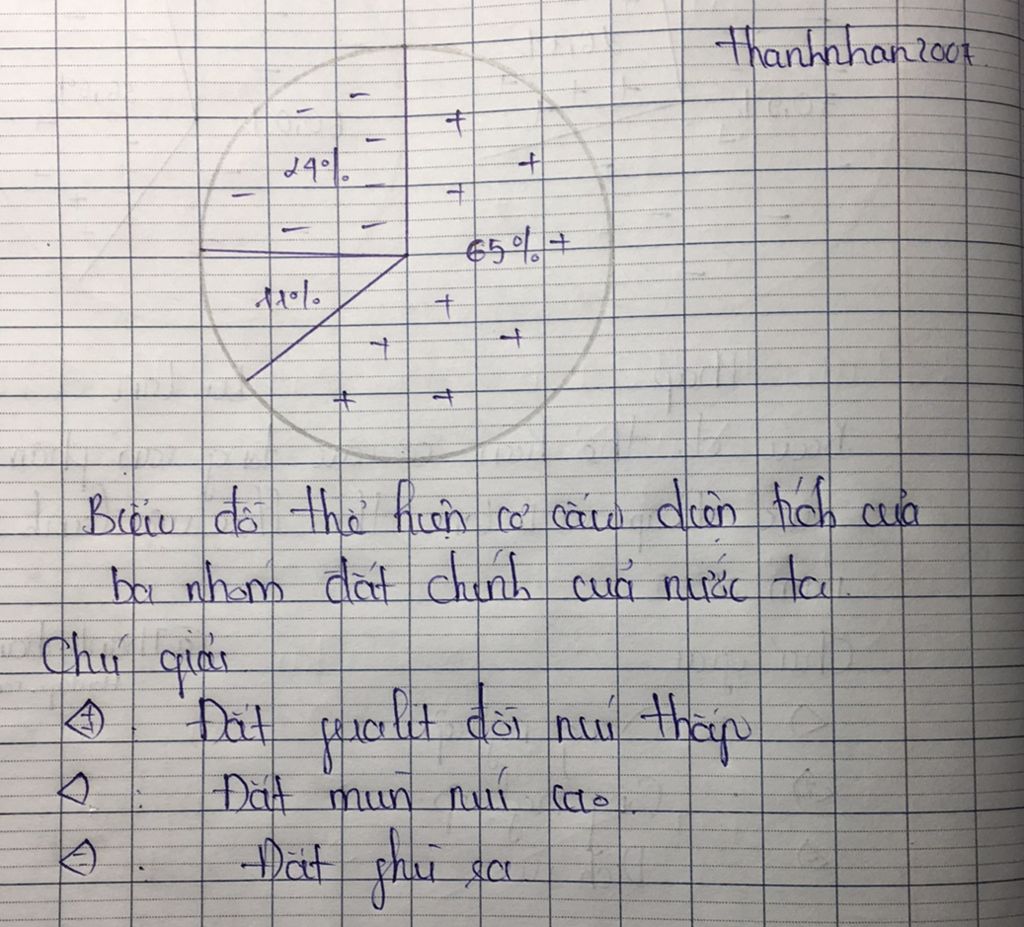 thanhnhan2007
24%
65%
11%
Biểu đồ thể hiện cơ cấu diện tích của
ba nhóm đất chính của nước ta.
Chú giải
+ : Đất feralit đồi núi thấp
: Đất mùn núi cao.
- : Đất phù sa